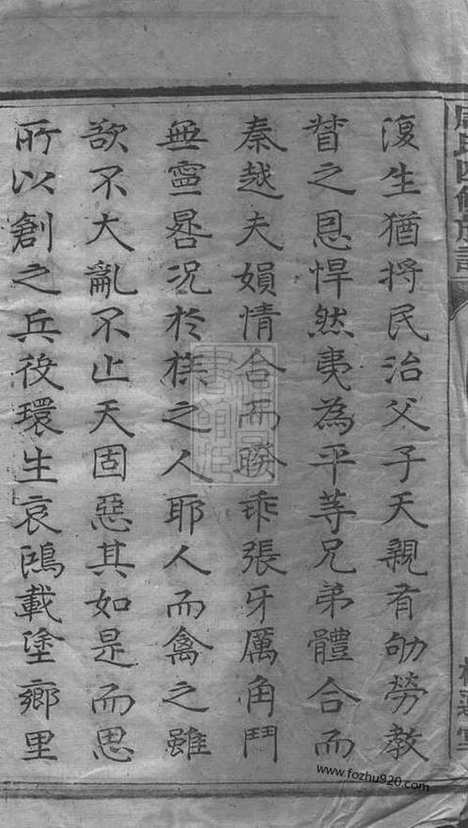 復生猶將民治父子天親有劬勞教
督之恩悍然夷為平等兄弟體合而
秦越夫婦情合而睽乖張牙厲角鬥
無寧晷况於族之人耶人而禽之雖
欲不大亂不止天固惡其如是而思
所以創之兵役環生哀鴻載塗鄉里
www.fozhu920.com